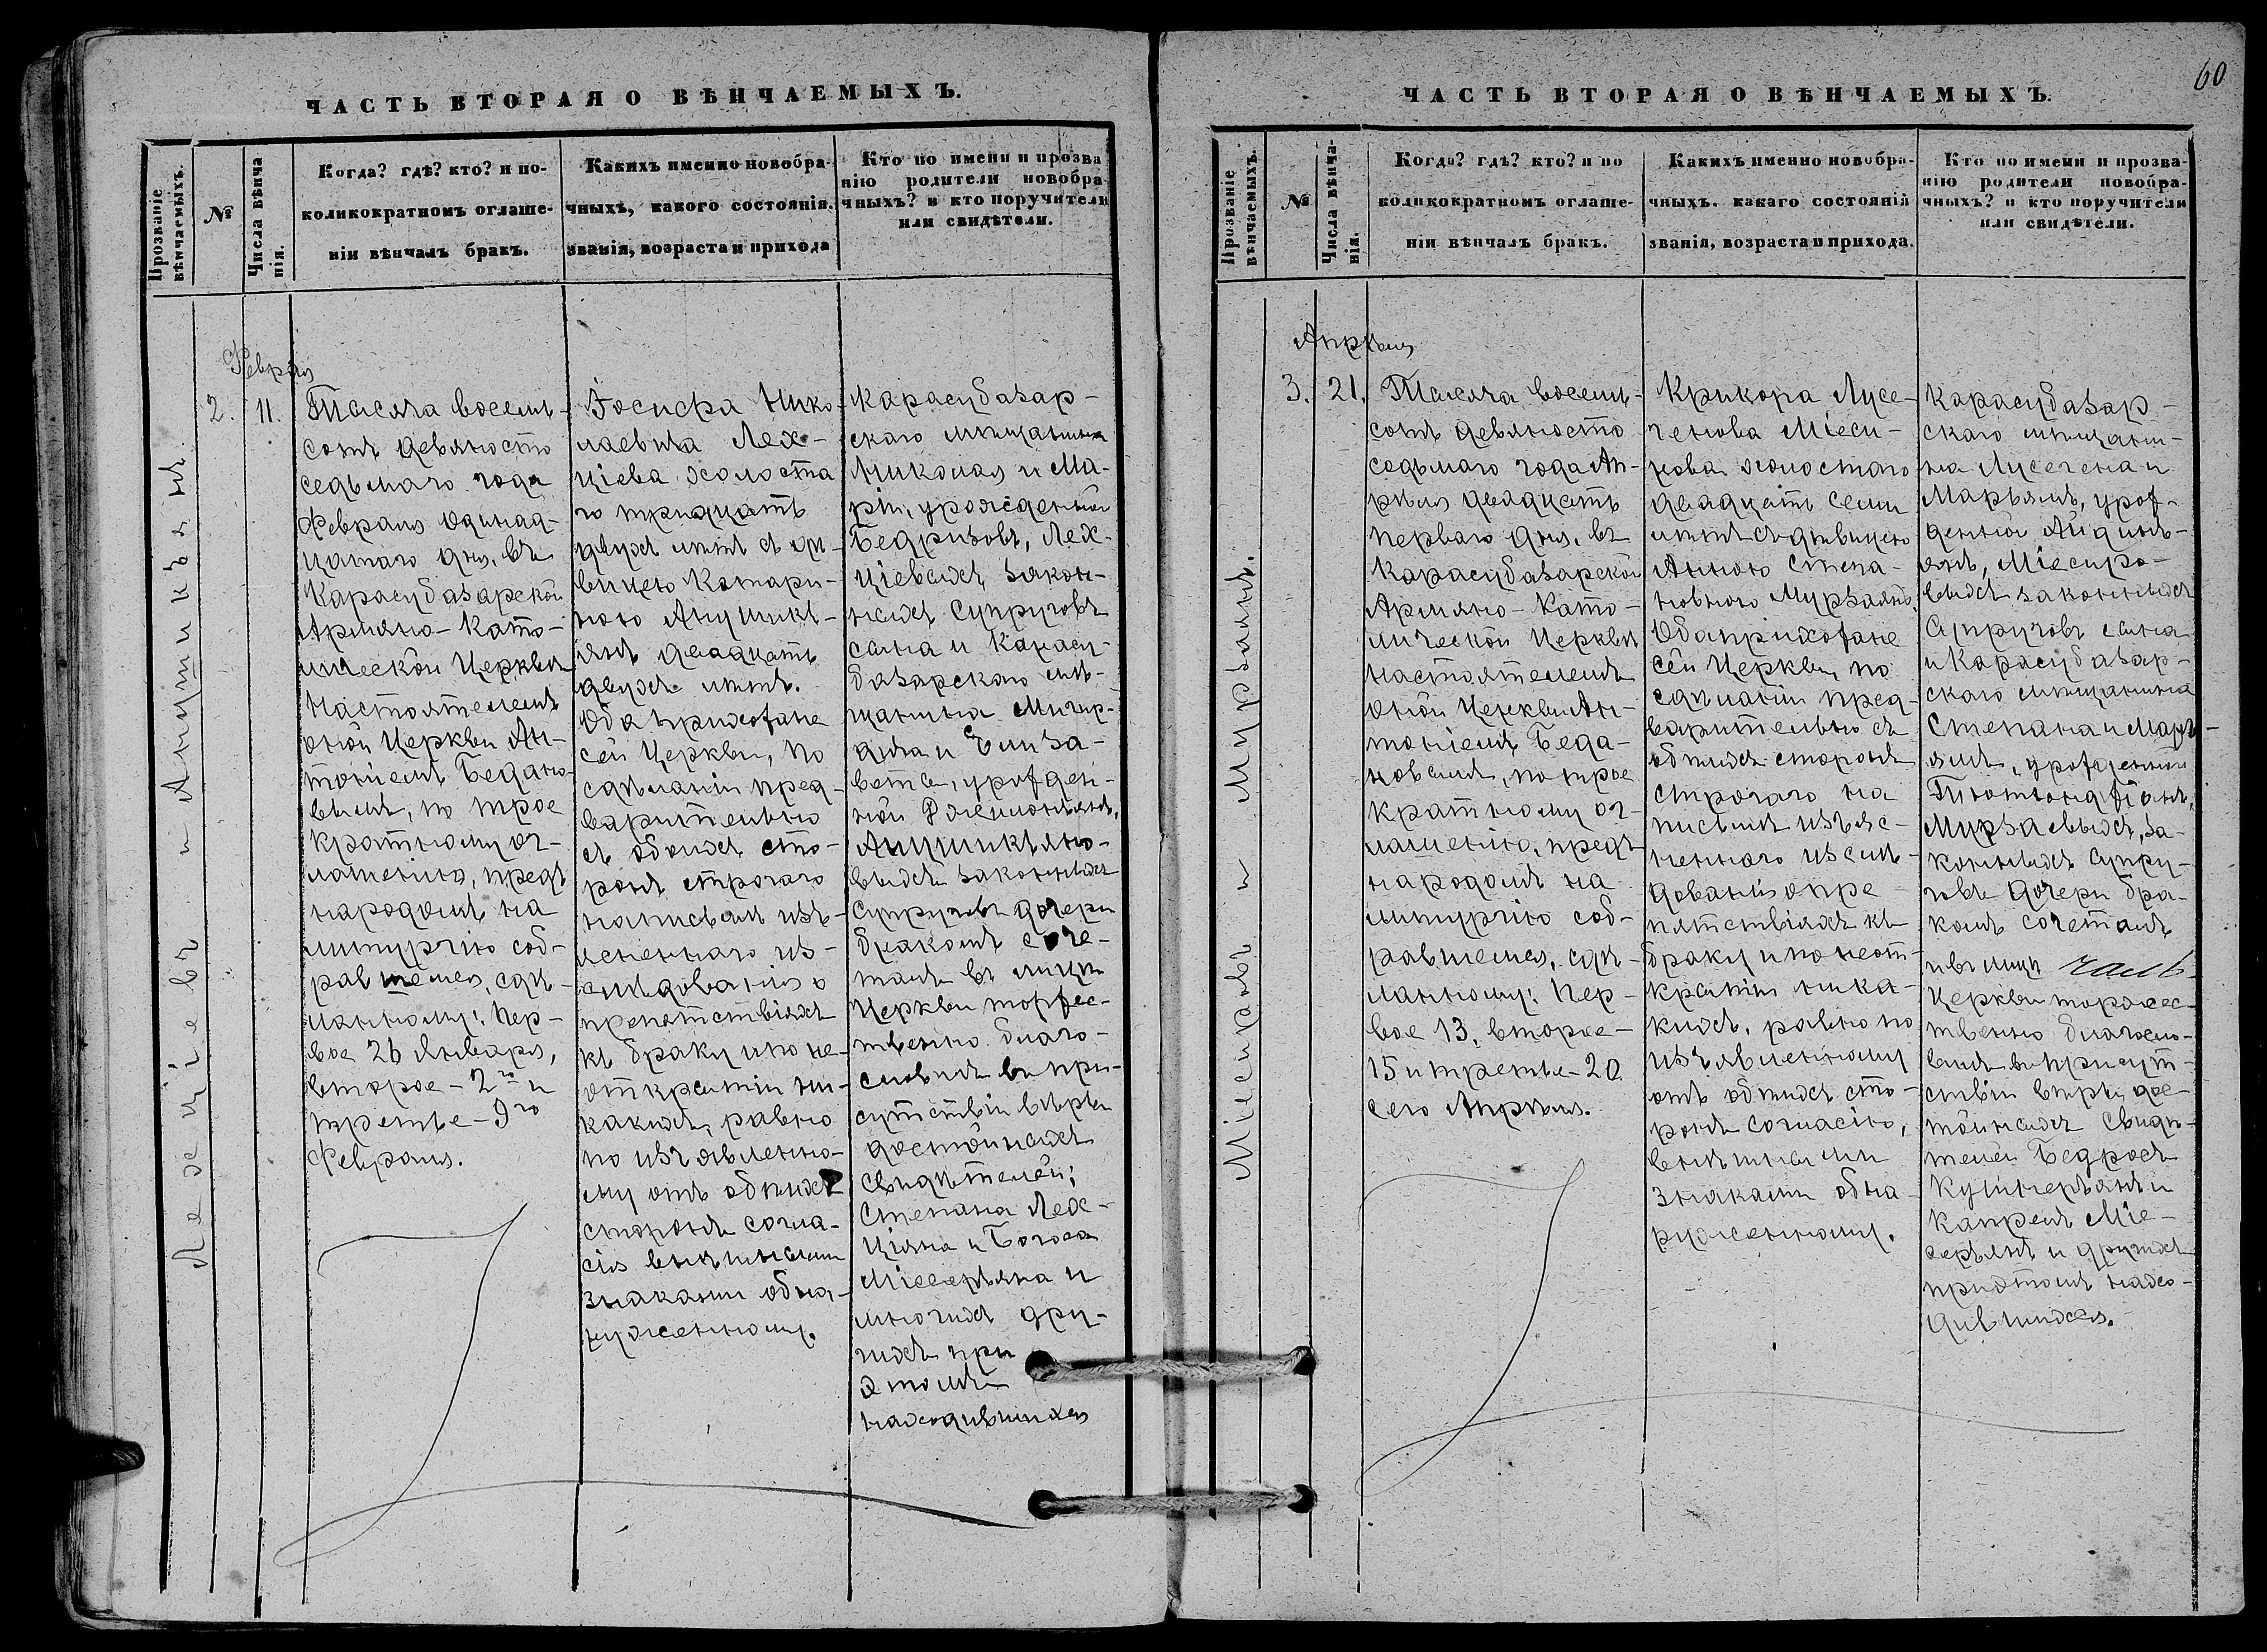 ЧАСТЬ ВТОРАЯ О ВѢНЧАЕМЫХЪ.
Прозваніе вѣнчаемыхъ.
№
Числа вѣнчанія.
Когда? гдѣ? кто? и по-
коликократномъ оглаше-
ніи вѣнчалъ бракъ.
Какихъ именно новобра-
чныхъ, какого состоянія,
званія, возраста и прихода
Кто по имени и прозва
нію родители новобра-
чныхъ? и кто поручители
или свидѣтели.
Лехціевъ и Анушикъянъ.
Февраля
2.
11.
Тысяча восемь-
сотъ девяносто
седьмаго года
Февраля одинад-
цатаго дня, въ
Карасубазарской
Армяно-Като-
лической Церкви
Настоятелемъ
оной Церкви Ан-
тоніемъ Бедано-
вымъ, по трое
кратному ог-
лашенію, предъ
народомъ на
литургію соб-
равшемся, сдѣ-
ланному: Пер-
вое 26 Января,
второе - 2го и
третье - 9го
Февраля.
Іосифа Нико-
лаевича Лех-
ціева холоста
го тридцать
двухъ лѣтъ съ дѣ-
вицею Катари-
ною Анушикъ-
янъ двадцать
двухъ лѣтъ.
Оба прихожане
сей Церкви, по
сдѣланіи пред-
варительно
съ обоихъ сто-
ронъ строгаго
на письмѣ изъ-
ясненнаго из-
слѣдованія о
препятствіяхъ
къ браку и по не-
открытіи ни-
какихъ, равно
по изъявленно-
му отъ обѣихъ
сторонъ согла-
сія внѣшными
знаками обна-
руженному.
Карасубазар-
скаго мѣщанина
Николая и Ма-
ріи, урожденной
Бедризовъ, Лех-
ціевыхъ закон-
ныхъ супруговъ
сына и Карасу-
базарскаго мѣ-
щанина Мигир-
дича и Елиза-
веты, урожден-
ной
Анушикъяно-
выхъ законныхъ
супруговъ дочери
бракомъ соче-
талъ въ лицѣ
Церкви торжес-
твенно благо-
словилъ въ при-
сутствіи вѣры
достойныхъ
свидѣтелей:
Степана Лех-
ціяна и Богоса
Міесерьяна и
многихъ дру-
гихъ при
этомъ
находившихся
60
ЧАСТЬ ВТОРАЯ О ВѢНЧАЕМЫХЪ.
Прозваніе вѣнчаемыхъ.
№
Числа вѣнчанія.
Когда? гдѣ? кто? и по
коликократномъ оглаше-
ніи вѣнчалъ бракъ.
Какихъ именно новобра-
чныхъ. какаго состоянія
званія, возраста и прихода.
Кто по имени и прозва-
нію родители новобра-
чныхъ? и кто поручители
или свидѣтели.
Міесировъ и Мурзаянъ.
Апрѣля
3.
21.
Тысяча восемь-
сотъ девяносто
седьмаго года Ап-
рѣля двадцать
перваго дня, въ
Карасубазарской
Армяно-Като-
лической Церкви
настоятелемъ
оной Церкви Ан-
тоніемъ Беда-
новымъ, по трое
кратному ог-
лашенію, предъ
народомъ на
литургію соб-
равшемся, сдѣ-
ланному: Пер-
вое 13, второе-
15 и третье-20
сего Апрѣля.
Крикора Лусе-
генова Міеси-
рова холостаго
двадцать семи
лѣтъ съ дѣвицею
Анною Степа-
новною Мурзаянъ.
Оба прихожане
сей Церкви, по
сдѣланіи пред-
варительно съ
обѣихъ сторонъ
строгаго на
письмѣ изъяс-
неннаго изслѣ-
дованія о пре-
пятствіяхъ къ
браку и по неот-
крытіи ника-
кихъ, равно по
изъявленному
отъ обѣихъ сто-
ронъ согласію,
внѣшными
знаками обна-
руженному.
Карасубазар-
скаго мѣщани-
на Лусегена и
Марьямъ, урож-
денной Айдинъ-
янъ, Міесиро-
выхъ законныхъ
супруговъ сына
и Карасубазар-
скаго мѣщанина
Степана и Марь-
ямъ, урожденной
Мурзаевыхъ, за-
конныхъ супру-
говъ дочери бра-
комъ сочеталъ
и въ лицѣ
Церкви торжес-
твенно благосло-
вилъ въ присут-
ствіи вѣры дос-
тойныхъ свидѣ-
телей Бедросъ
Кушнерьянъ и
Капрелъ Міе-
серьянъ и другихъ
при томъ нахо-
дившихся.